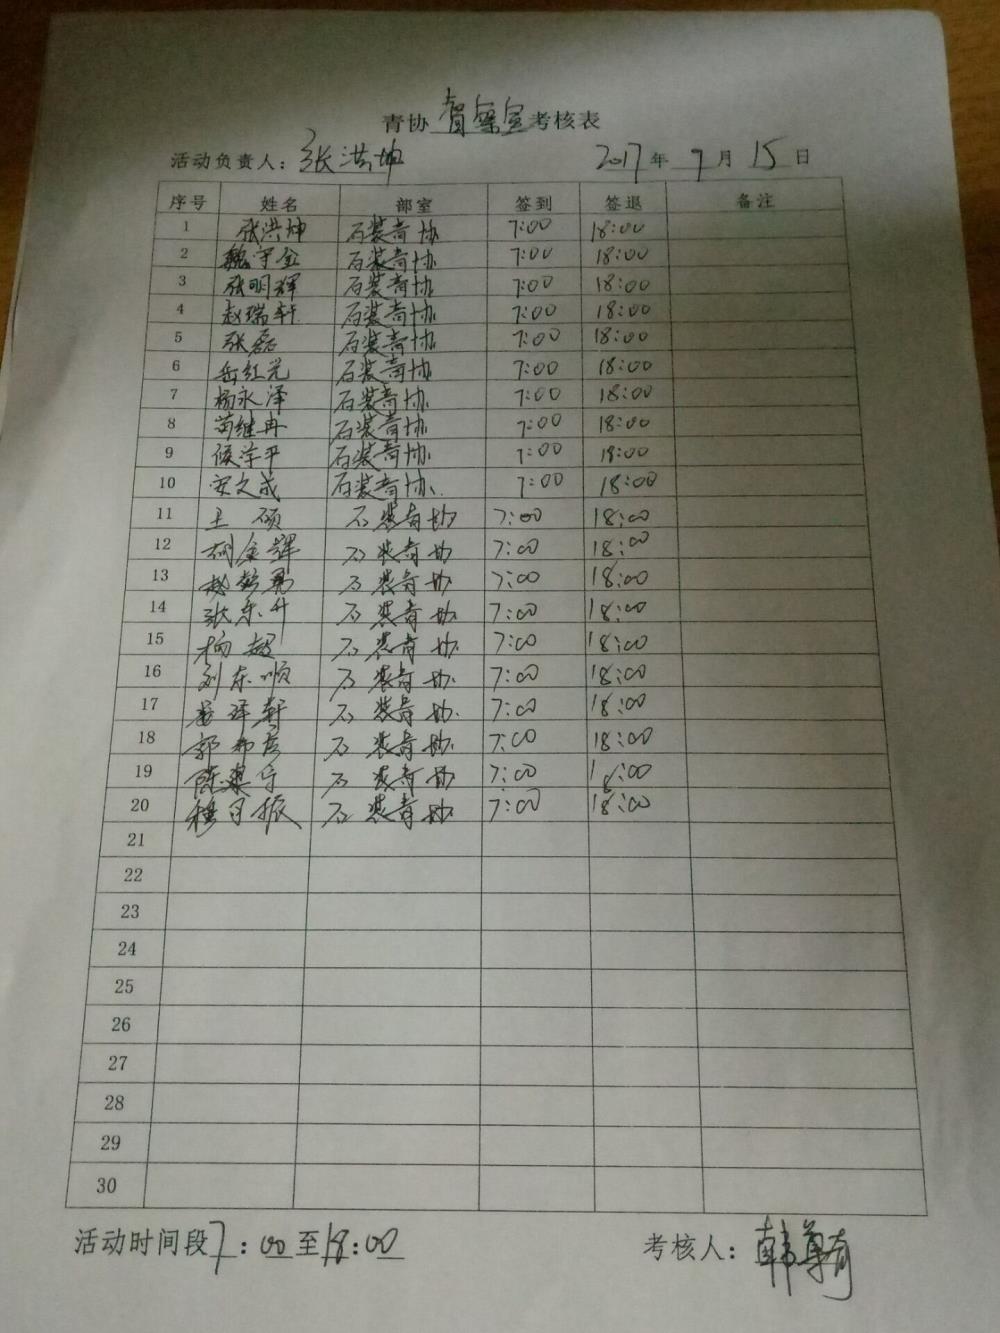 青协 考核表
活动负责人：张洪坤 2017年9月15日
序号 姓名 部室 签到 签退 备注
1 张洪坤 石装青协 7:00 18:00
2 魏守金 石装青协 7:00 18:00
3 张明辉 石装青协 7:00 18:00
4 赵瑞轩 石装青协 7:00 18:00
5 张磊 石装青协 7:00 18:00
6 岳红光 石装青协 7:00 18:00
7 杨永泽 石装青协 7:00 18:00
8 苗继冉 石装青协 7:00 18:00
9 侯泽平 石装青协 7:00 18:00
10 安文成 石装青协 7:00 18:00
11 王硕 石装青协 7:00 18:00
12 金辉 石装青协 7:00 18:00
13 赵 勇 石装青协 7:00 18:00
14 张东升 石装青协 7:00 18:00
15 杨超 石装青协 7:00 18:00
16 刘东顺 石装青协 7:00 18:00
17 泽轩 石装青协 7:00 18:00
18 郭 彦 石装青协 7:00 18:00
19 陈 石装青协 7:00 18:00
20 穆 振 石装青协 7:00 18:00
21
22
23
24
25
26
27
28
29
30
活动时间段7:00至18:00 考核人：韩